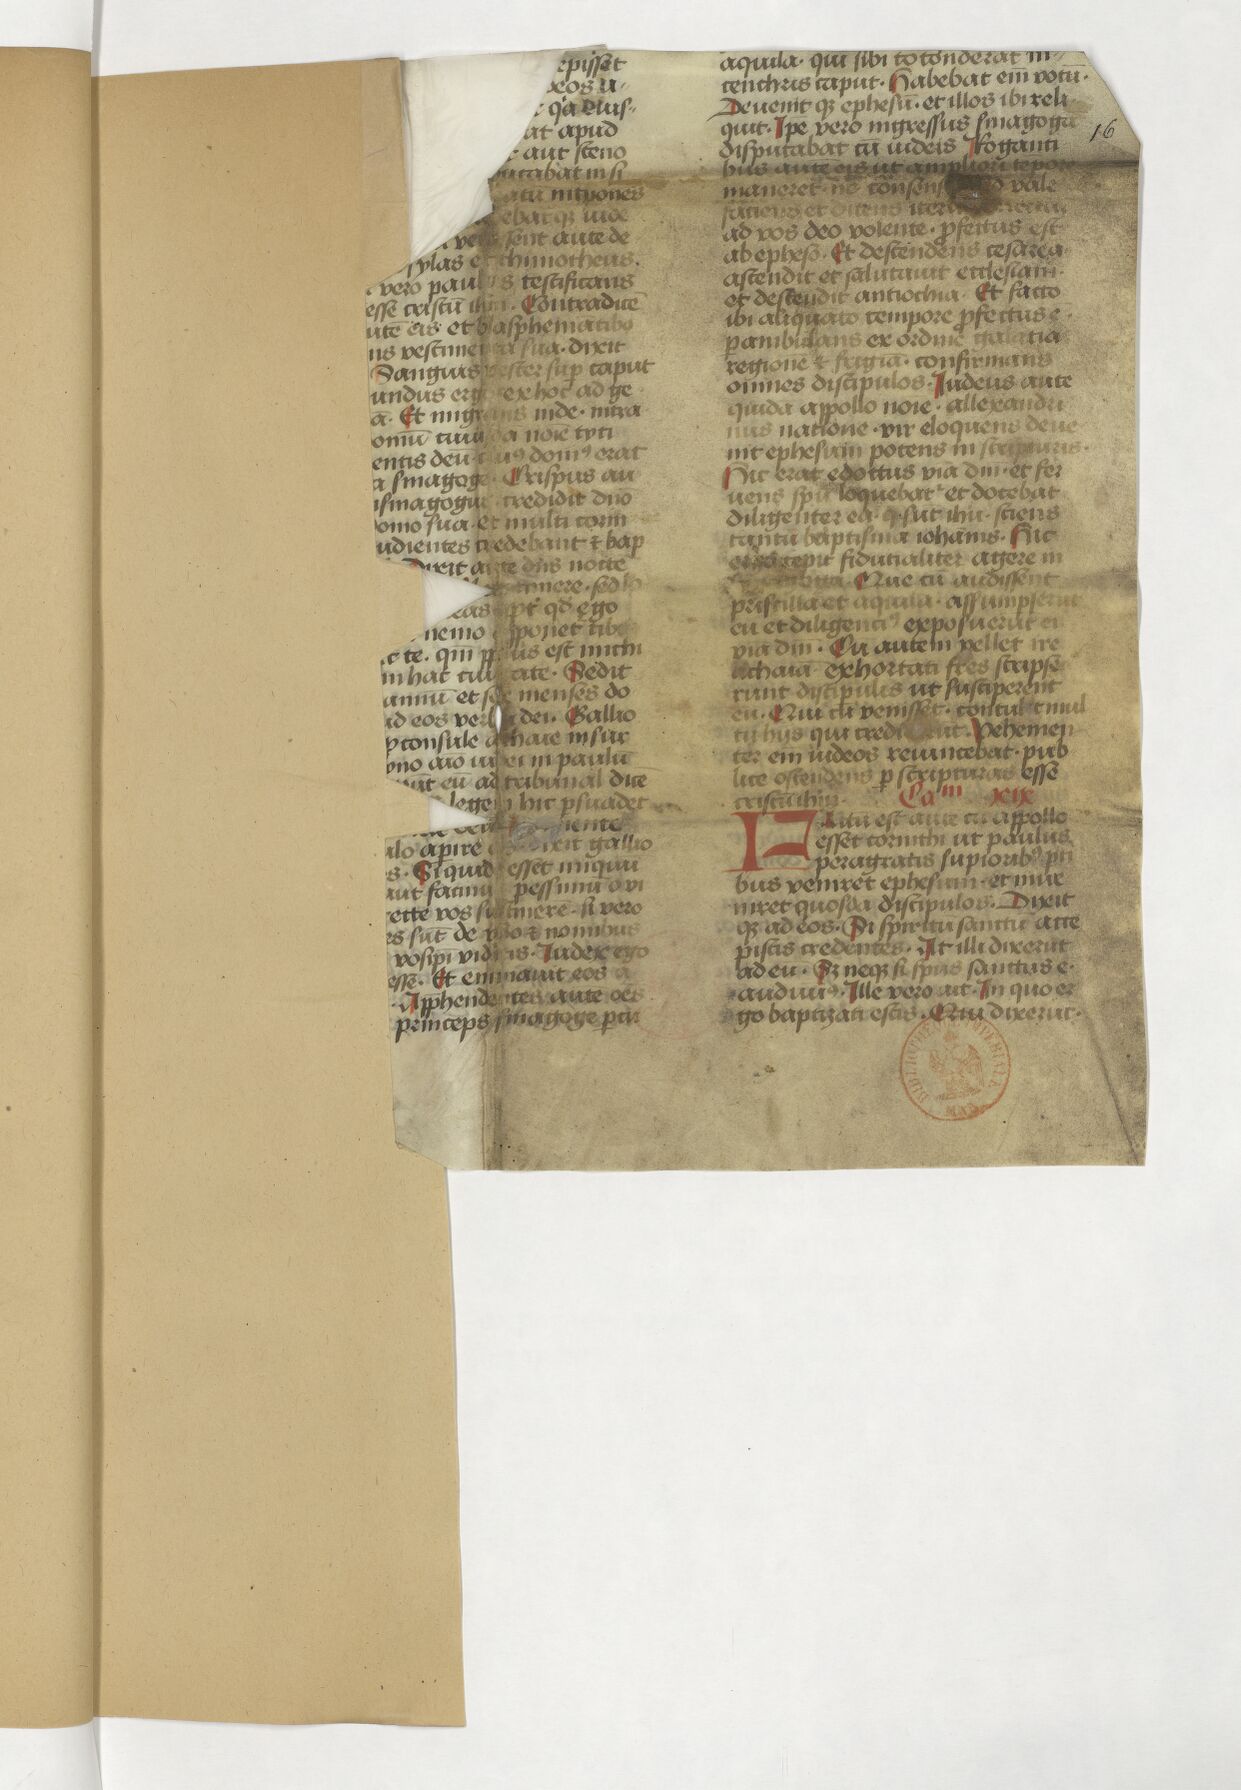 episset
deos u-
at apud
aut sceno
putabat in si
atū intponēs
debatq; iude
vero
sylas et thimotheus.
vero paulus testificans
esse cristū ihm. Contradicē
tibus aute eis et blasphemātibꝰ
us vestimenta sua. dixit
Sanguis vester suꝑ caput
undus ergo ex hoc ad ge
ā. Et migrans inde. intra
omū cuiusdā noīe tyti
entis deū. cuiꝰ domꝰ erat
a sinagoge. Crispus au
isinagogus credidit dn̄o
omo sua. et multi corin
udientes credebant ⁊ bap
Dixit aute dn̄s nocte
timere. sed lo
eas ꝓpt̄ qd̄ ego
nemo apponet tibi
te. qm̄ ppl̄us est michi
in hac ciuitate. Sedit
annū et sex menses do
ad eos verbū dei. Gallio
ꝓconsule achaie insur
uno aīo iudei in paulū
erūt eū ad tribunal dicē
legem hic ꝑsuadet
ulo apire os. dixit gallio
s. Si quid esset iniquū
aut facinus pessimū o vi
recte vos sustinere. si vero
es sūt de v̓bo ⁊ nominibus
vosip̄i videris. Iudex ego
esse. Et eminauit eos a
Apphendentes aute oēs
principē sinagoge ꝑcu
aquila. qui sibi totonderat in
tenchris caput. Habebat em̄ votū.
Deuenit q; ephesū. et illos ibi reli
quit. Ipe vero ingressus sinagogā
disputabat cū iudeis Rogāti
bus aute eis ut ampliori tēpore
maneret. nō consens sed vale
faciens et dicens iterū
ad vos deo volente. ꝓfectus est
ab epheso. Et descendens cesarea
ascendit et salutauit ecclesiam.
et descendit antiochiā. Et facto
ibi aliquāto tempore ꝓfectus ē.
ꝑambulans ex ordine galatiā
regionē ⁊ frigiā. confirmans
omnes discipulos. Iudeus aute
quidā appollo noīe. allexandri
nus natione. vir eloquens deue
nit ephesum potens in scripturis.
Hic erat edoctus viā dn̄i. et fer
uens spū loquebat̄ et docebat
diligenter ea. q̄ sūt ihū. sciens
tantū baptisma iohānis. Hic
ergo cepit fiducialiter agere in
sinagoga. Que cū audissent
priscilla et aquila. assumpserūt
eū et diligenciꝰ exposuerūt ei
viā dn̄i. Cū autem vellet ire
achaiā. exhortati fr̄es scripse
runt discipulis ut susciperent
eū. Qui cū venisset. contulit mul
tū hijs qui crediderūt. Vehemen
ter em̄ iudeos reuincebat. pub
lice ostendens ꝑ scripturas esse
cristū ihm. Cam xix
Factū est aute cū appollo
esset corinthi ut paulus
peragratis supioribꝰ pti
bus veniret ephesum. et inue
niret quosdā discipulos. Dixit
q; ad eos. Si spiritū sanctū acce
pistis credentes. At illi dixerūt
ad eū. Sz neq; si spūs sanctus ē.
audiuimꝰ. Ille vero ait. In quo er
go baptizati estis. Qui dixerūt.
16